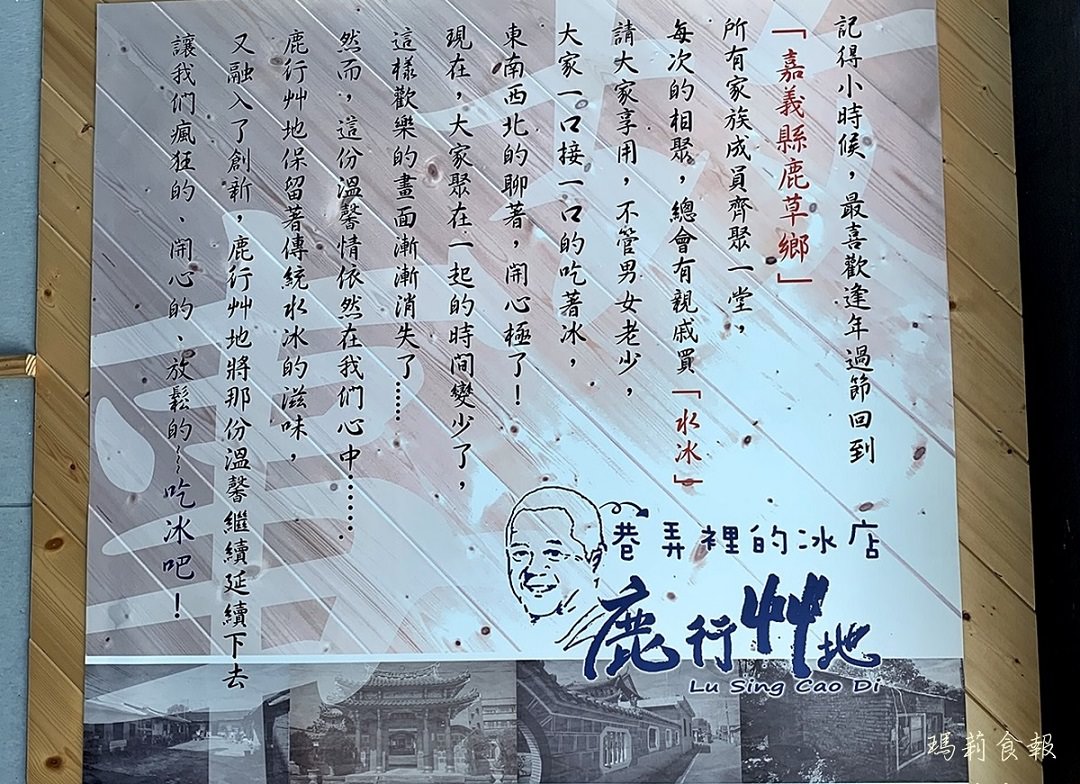 記得小時候，最喜歡逢年過節回到
「嘉義縣鹿草鄉」
所有家族成員齊聚一堂，
每次的相聚，總會有親戚買「水冰」
請大家享用，不管男女老少，
大家一口接一口的吃著冰，
東南西北的聊著，開心極了！
現在，大家聚在一起的時間變少了，
這樣歡樂的畫面漸漸消失了……
然而，這份溫馨情依然在我們心中……．
鹿行艸地保留著傳統水冰的滋味，
又融入了創新，鹿行艸地將那份溫馨繼續延續下去
讓我們瘋狂的、開心的、放鬆的~~吃冰吧！
巷弄裡的冰店
鹿行艸地
Lu Sing Cao Di
瑪莉食報